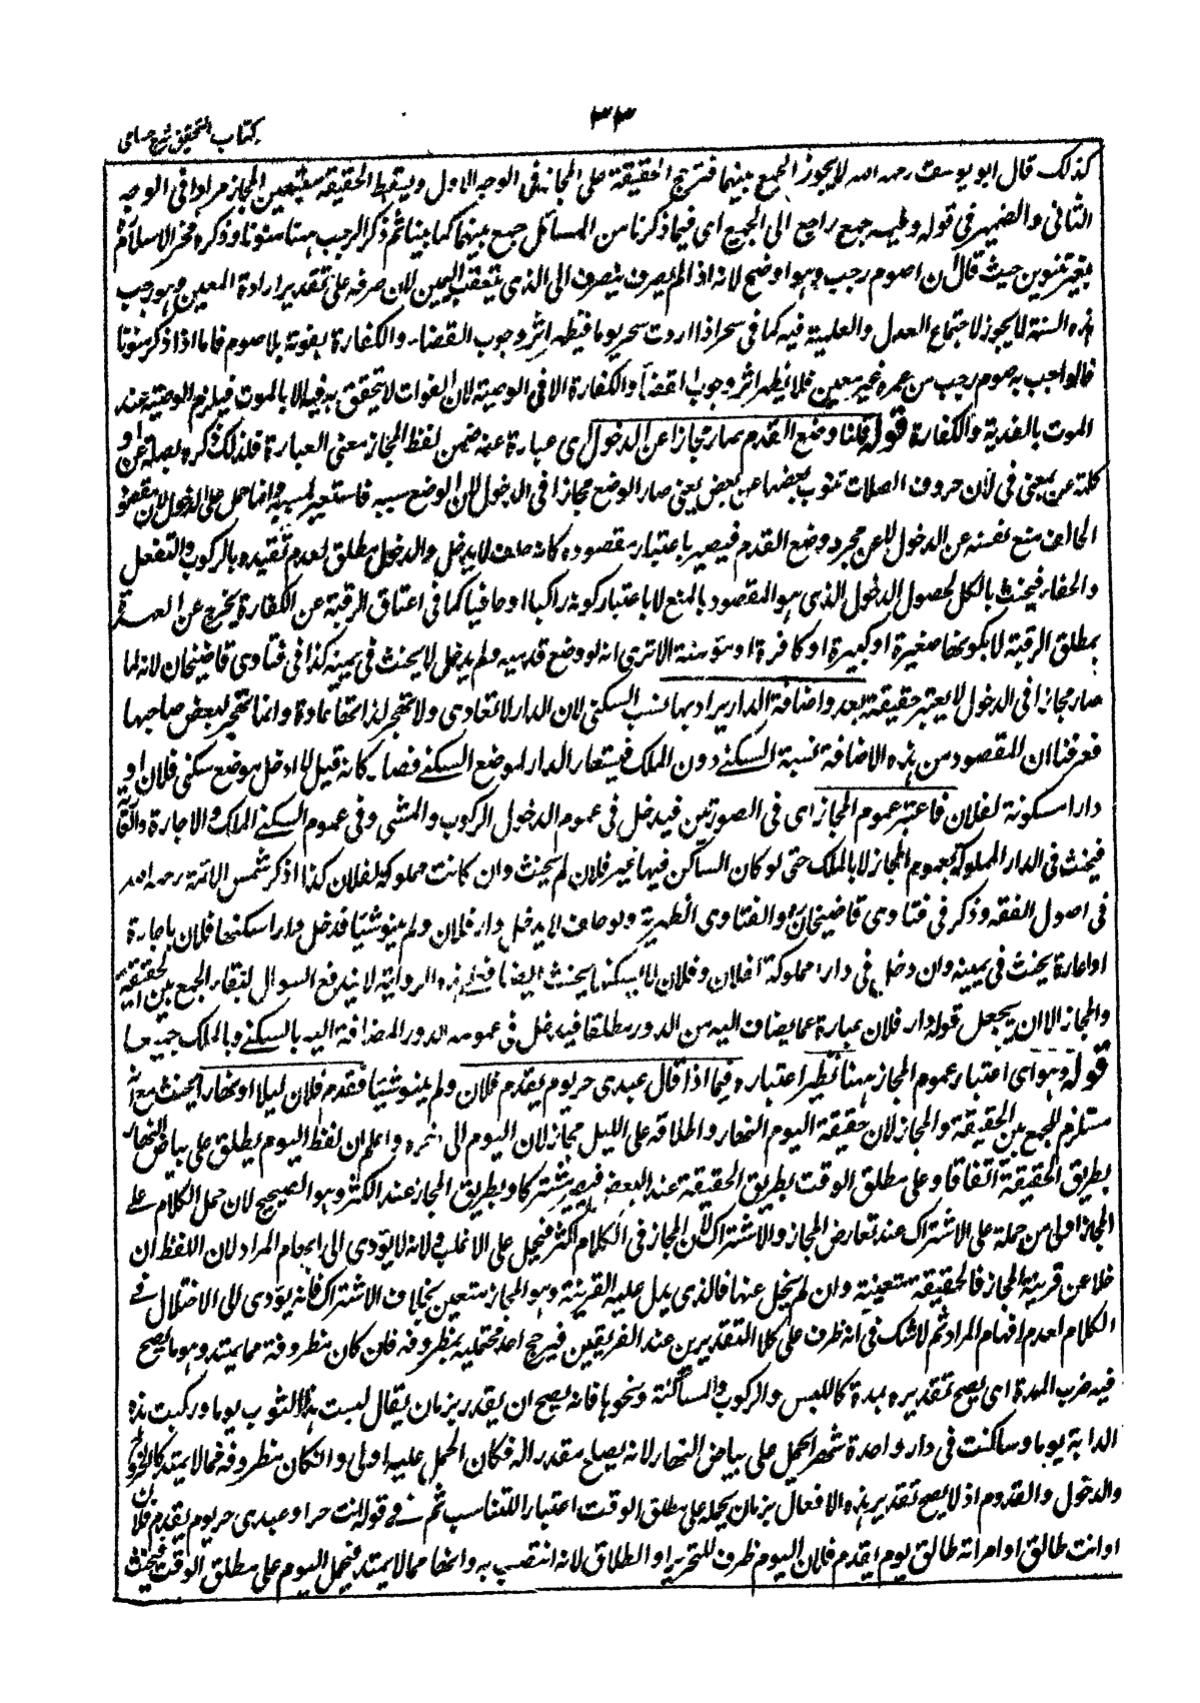 ٣٣
كتاب التحقيق شرح حسامى
كذلك قال ابو يوسف رحمه الله لا يجوز الجمع بينهما فترجح الحقيقة على المجاز فى الوجه الاول ويسقط الحقيقة بتعين المجاز مرادا فى الوجه
الثانى والضمير فى قوله وليه جمع راجع الى الجميع اى فيما ذكرنا من المسائل جمع بينهما كما بينا ثم ذكر الرجب ههنا منونا وذكره فخر الاسلام
بغير تنوين حيث قال ان اصوم رجب وهو اوضح لانه اذا لم يصرف ينصرف الى الذى يتعقب اليمين لان صرفه على تقدير ارادة المعين وهو رجب
هذه السنة لا يجوز لاجتماع العدل والعلمية فيه كما فى سحر اذا اردت سحر يوما فيظهر اثر وجوب القضاء والكفارة بفوته بلا صوم فاما اذا ذكر منونا
فالواجب به صوم رجب من عمره غير معين فلا يظهر اثر وجوب القضاء والكفارة الا فى الوصية لان الفوات لا يتحقق به فيه الا بالموت فيلزم الوصية عند
الموت بالفدية والكفارة قوله قلنا وضع القدم صار مجازا عن الدخول اى عبارة عنه ضمن لفظ المجاز معنى العبارة فلذلك ذكره بصلة عن او
كلمة عن بمعنى فى لان حروف الصلات تنوب بعضها عن بعض يعنى صار الوضع مجازا فى الدخول لان الوضع سببه فاستعير لمسببه وانما حمل على الدخول لان مقصود
الحالف منع نفسه عن الدخول لا عن مجرد وضع القدم فيصير باعتبار مقصوده كانه حلف لا يدخل والدخول مطلق لعدم تقيده بالركوب والتنعل
والحفاء فيحنث بالكل لحصول الدخول الذى هو المقصود بالمنع لا باعتبار كونه راكبا او حافيا كما فى اعتاق الرقبة عن الكفارة يخرج عن العهدة
بمطلق الرقبة لا بكونها صغيرة او كبيرة او كافرة او مؤمنة الا ترى انه لو وضع قدميه ولم يدخل لا يحنث فى يمينه كذا فى فتاوى قاضيخان لانه لما
صار مجازا فى الدخول لا يعتبر حقيقته بعد واضافة الدار يراد بها نسب السكنى لان الدار لا تعادى ولا تهجر لذاتها عادة وانما تهجر لبغض صاحبها
فعرفنا ان المقصود من هذه الاضافة نسبة السكنى دون الملك فيستعار الدار لموضع السكنى فصار كانه قيل لا ادخل موضع سكنى فلان او
دارا مسكونة لفلان فاعتبر عموم المجاز اى فى الصورتين فيدخل فى عموم الدخول الركوب والمشى وفى عموم السكنى الملك والاجارة والعارية
فيحنث فى الدار المملوكة بعموم المجاز لا بالملك حتى لو كان الساكن فيها غير فلان لم يحنث وان كانت مملوكة لفلان كذا ذكر شمس الائمة رحمه الله
فى اصول الفقه وذكر فى فتاوى قاضيخان والفتاوى الظهيرية ولو حلف لا يدخل دار فلان ولم ينو شيئا فدخل دارا سكنها فلان باجارة
او اعارة يحنث فى يمينه وان دخل فى دار مملوكة لفلان وفلان لا يسكنها يحنث ايضا فعلى هذه الرواية لا يندفع السوال لبقاء الجمع بين الحقيقة
والمجاز الا ان يجعل قوله دار فلان عبارة عما يضاف اليه من الدور مطلقا فيدخل فى عمومه الدور المضافة اليه بالسكنى وبالملك جميعا
قوله وهو اى اعتبار عموم المجاز ههنا نظير اعتباره فيما اذا قال عبدى حر يوم يقدم فلان ولم ينو شيئا فقدم فلان ليلا او نهارا يحنث مع انه
مستلزم للجمع بين الحقيقة والمجاز لان حقيقة اليوم النهار واطلاقه على الليل مجاز لان اليوم الى اخره واعلم ان لفظ اليوم يطلق على بياض النهار
بطريق الحقيقة اتفاقا وعلى مطلق الوقت بطريق الحقيقة عند البعض فيصير مشتركا وبطريق المجاز عند الاكثر وهو الصحيح لان حمل الكلام على
المجاز اولى من حمله على الاشتراك عند تعارض المجاز والاشتراك لان المجاز فى الكلام اكثر فيحمل على الاغلب ولانه لا يؤدى الى ابهام المراد لان اللفظ ان
خلا عن قرينة المجاز فالحقيقة متعينة وان لم يخل عنها فالذى يدل عليه القرينة وهو المجاز متعين بخلاف الاشتراك فانه يؤدى الى الاختلال فى
الكلام لعدم افهام المراد ثم لا شك فى انه ظرف على كلا التقديرين عند الفريقين فيرجح احد محتمليه بمظروفه فان كان مظروفه مما يمتد وهو ما يصح
فيه ضرب المدة اى يصح تقديره بمدة كاللبس والركوب والمساكنة ونحوها فانه يصح ان يقدر بزمان يقال لبست هذا الثوب يوما وركبت هذه
الدابة يوما وساكنت فى دار واحدة شهرا يحمل على بياض النهار لانه يصلح مقدرا له فكان الحمل عليه اولى وان كان مظروفه مما لا يمتد كالخروج
والدخول والقدوم اذ لا يصح تقدير هذه الافعال بزمان يحمل على مطلق الوقت اعتبارا للتناسب ثم فى قوله انت حر او عبدى حر يوم يقدم فلان
او انت طالق او امراته طالق يوم يقدم فلان اليوم ظرف للتحرير او الطلاق لانه انتصب به وانهما مما لا يمتد فيحمل اليوم على مطلق الوقت فيحنث